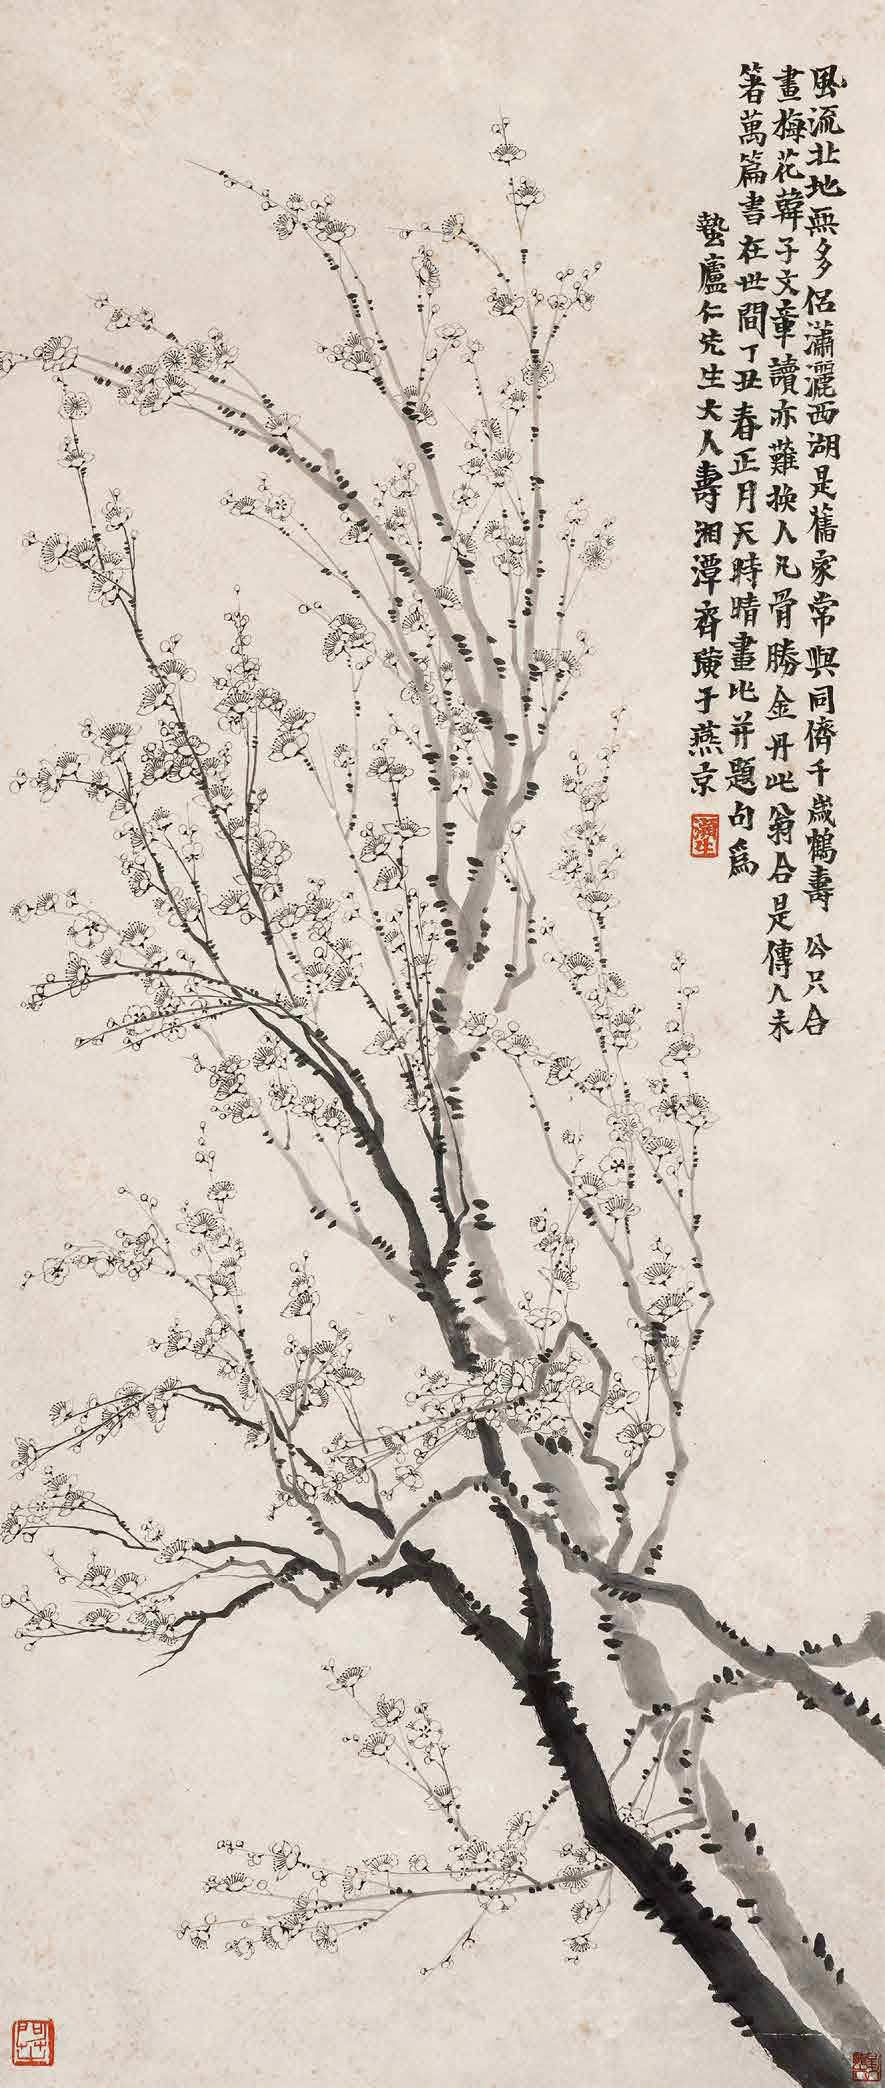 風流北地無多侶瀟灑西湖是舊家常與同儕千歲鶴壽公只合
畫梅花韓子文章讀亦難換人凡骨勝金丹此翁合是傳人未
箸萬篇書在世間丁丑春正月天時晴畫此并題句為
蟄廬仁先生大人壽湘潭齊璜于燕京